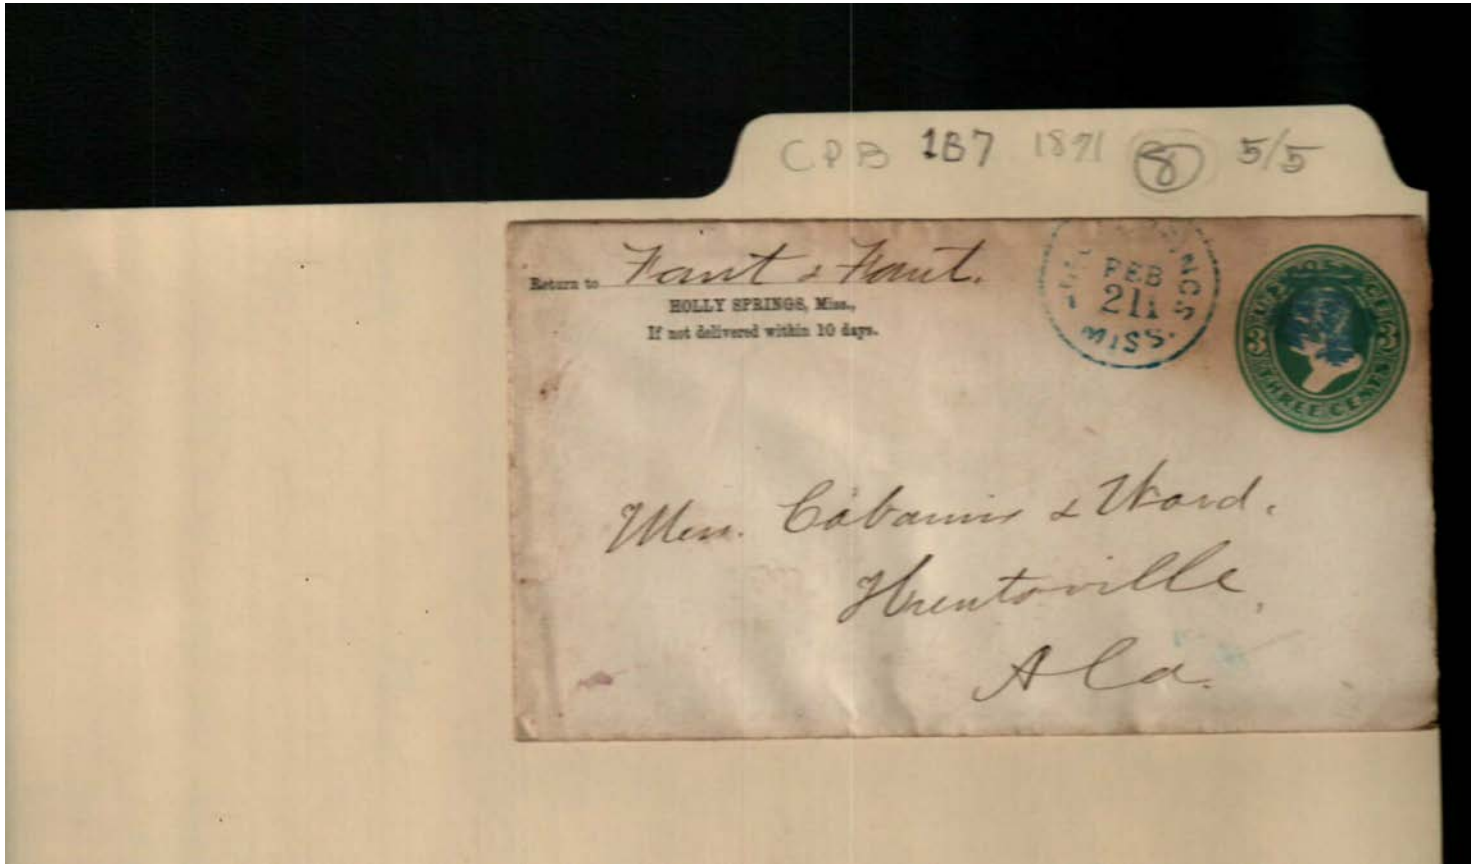 CPB 1B7 1871 8 5/5
Return to Fant & Fant.
HOLLY SPRINGS, Miss.,
If not delivered within 10 days.
FEB
21
MISS.
U.S. POSTAGE
3 3
THREE CENTS
Mess. Cabaniss & Ward.
Huntsville,
Ala.